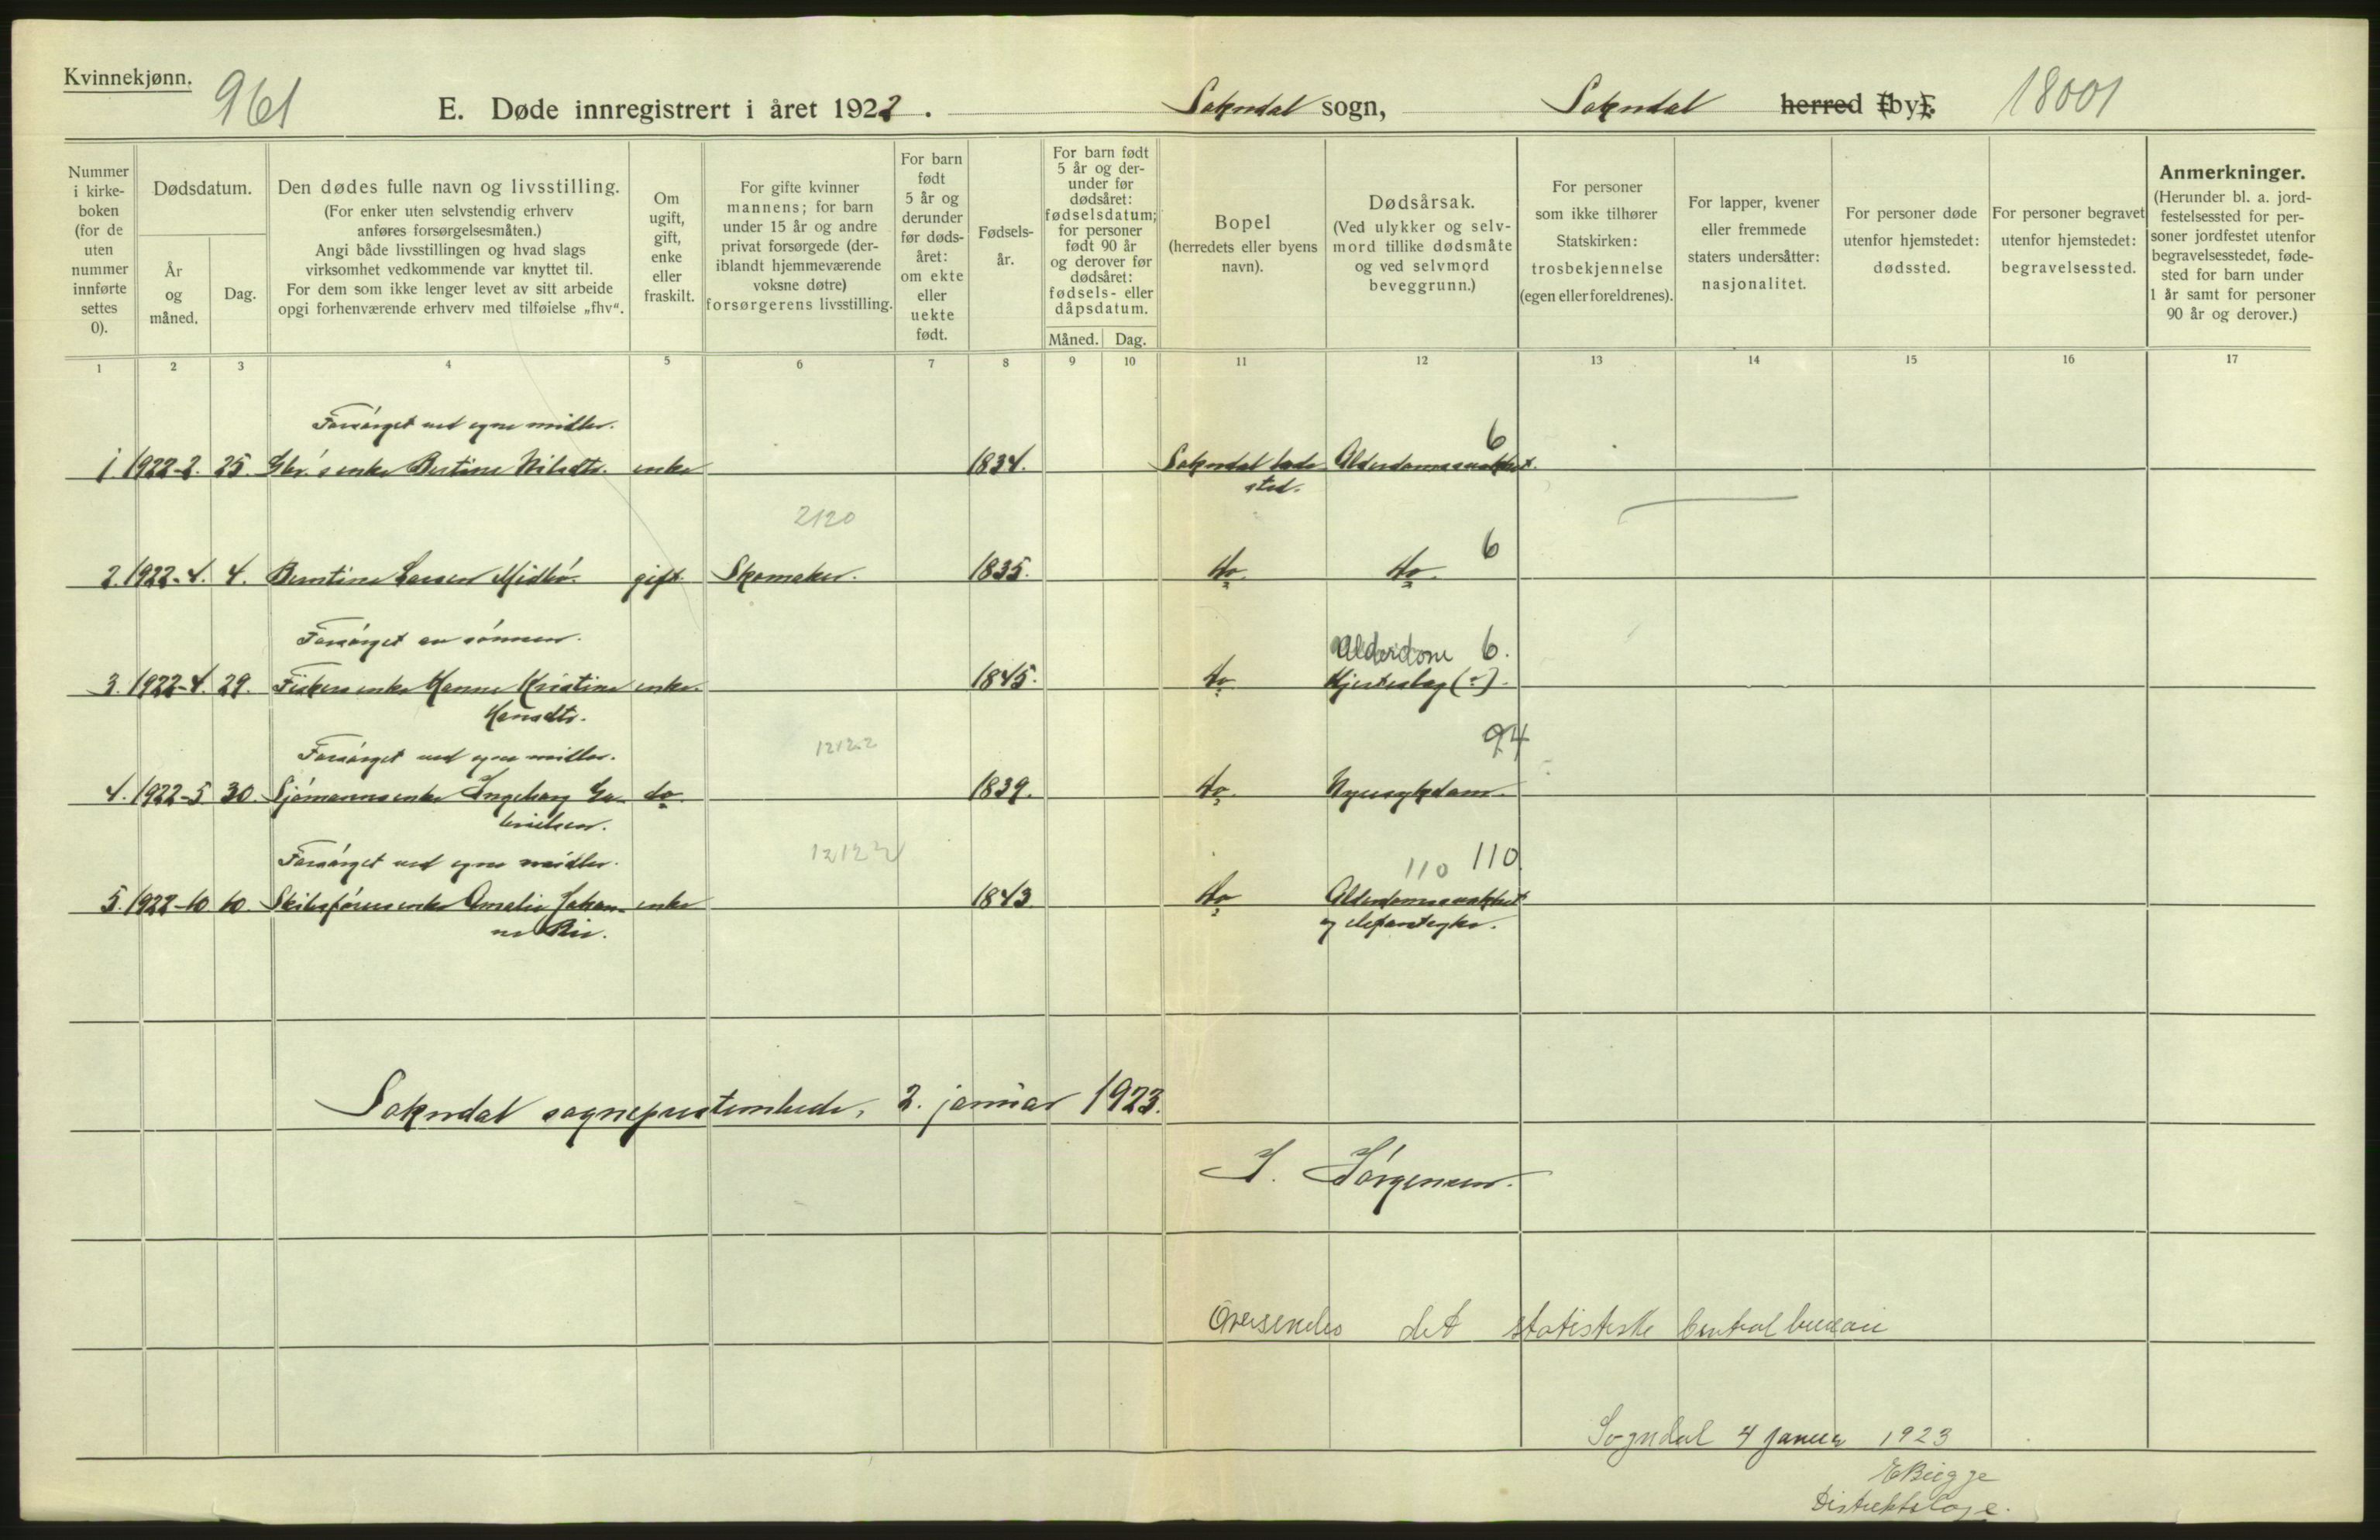 Kvinnekjønn.
961
E. Døde innregistrert i året 1922. Sokndal sogn, Sokndal herred (by).
18001
Nummer i kirke-
boken
(for de
uten
nummer
innførte
settes
0).
Dødsdatum.
År
og
måned.
Dag.
Den dødes fulle navn og livsstilling.
(For enker uten selvstendig erhverv
anføres forsørgelsesmåten.)
Angi både livsstillingen og hvad slags
virksomhet vedkommende var knyttet til.
For dem som ikke lenger levet av sitt arbeide
opgi forhenværende erhverv med tilføielse „fhv“.
Om
ugift,
gift,
enke
eller
fraskilt.
For gifte kvinner
mannens; for barn
under 15 år og andre
privat forsørgede (der-
iblandt hjemmeværende
voksne døtre)
forsørgerens livsstilling.
For barn
født
5 år og
derunder
før døds-
året:
om ekte
eller
uekte
født.
Fødsels-
år.
For barn født
5 år og der-
under før
dødsåret:
fødselsdatum;
for personer
født 90 år
og derover før
dødsåret:
fødsels- eller
dåpsdatum.
Måned. Dag.
Bopel
(herredets eller byens
navn).
Dødsårsak.
(Ved ulykker og selv-
mord tillike dødsmåte
og ved selvmord
beveggrunn.)
For personer
som ikke tilhører
Statskirken:
trosbekjennelse
(egen eller foreldrenes).
For lapper, kvener
eller fremmede
staters undersåtter:
nasjonalitet.
For personer døde
utenfor hjemstedet:
dødssted.
For personer begravet
utenfor hjemstedet:
begravelsessted.
Anmerkninger.
(Herunder bl. a. jord-
festelsessted for per-
soner jordfestet utenfor
begravelsesstedet, føde-
sted for barn under
1 år samt for personer
90 år og derover.)
1 2 3 4 5 6 7 8 9 10 11 12 13 14 15 16 17
Forsørget ved egne midler.
6
1. 1922-2. 25. enke Bertine enke 1834. Sokndal lade Alderdomssvakhet.
sted.
2120
6
2. 1922-4. 4. Berntine Larsen Midbø. gift. Skomaker. 1835. do. do.
Forsørget av sønnen.
Alderdom 6.
3. 1922-4. 29. Fiskers enke Hanne Kristine enke. 1845. do Hjerteslag (?).
Hansdtr.
1212.2
94
Forsørget ved egne midler.
4. 1922-5 30. Sjømanns enke Ingeborg Ga- do. 1839. do. Nyresykdom.
brielsen.
12122
110 110
Forsørget ved egne midler.
5. 1922-10 10. Skibsførers enke Amalie Johan- enke 1843. do Alderdomssvakhet
ne
Sokndal sogneprestembede, 2. januar 1923.
J. Jørgensen.
Oversendes det statistiske Centralbureau
Sogndal 4 januar 1923
EBugge
Distriktslæge.